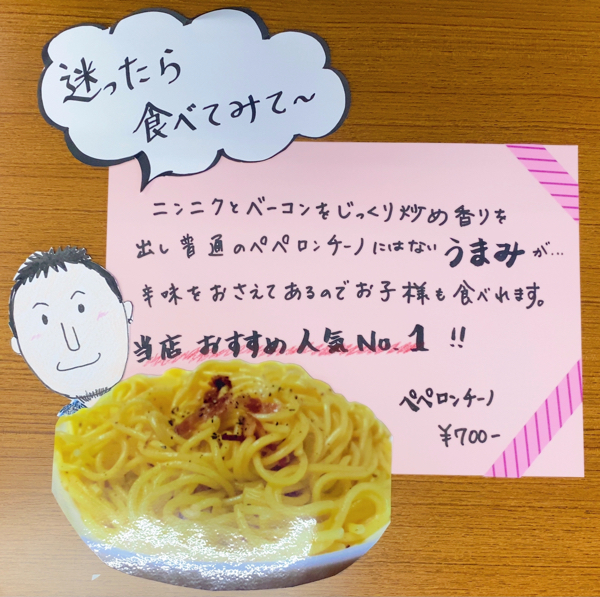 迷ったら
食べてみて〜
ニンニクとベーコンをじっくり炒め香りを
出し普通のペペロンチーノにはないうまみが…
辛味をおさえてあるのでお子様も食べれます。
当店おすすめ人気No.1!!
ペペロンチーノ
¥700-